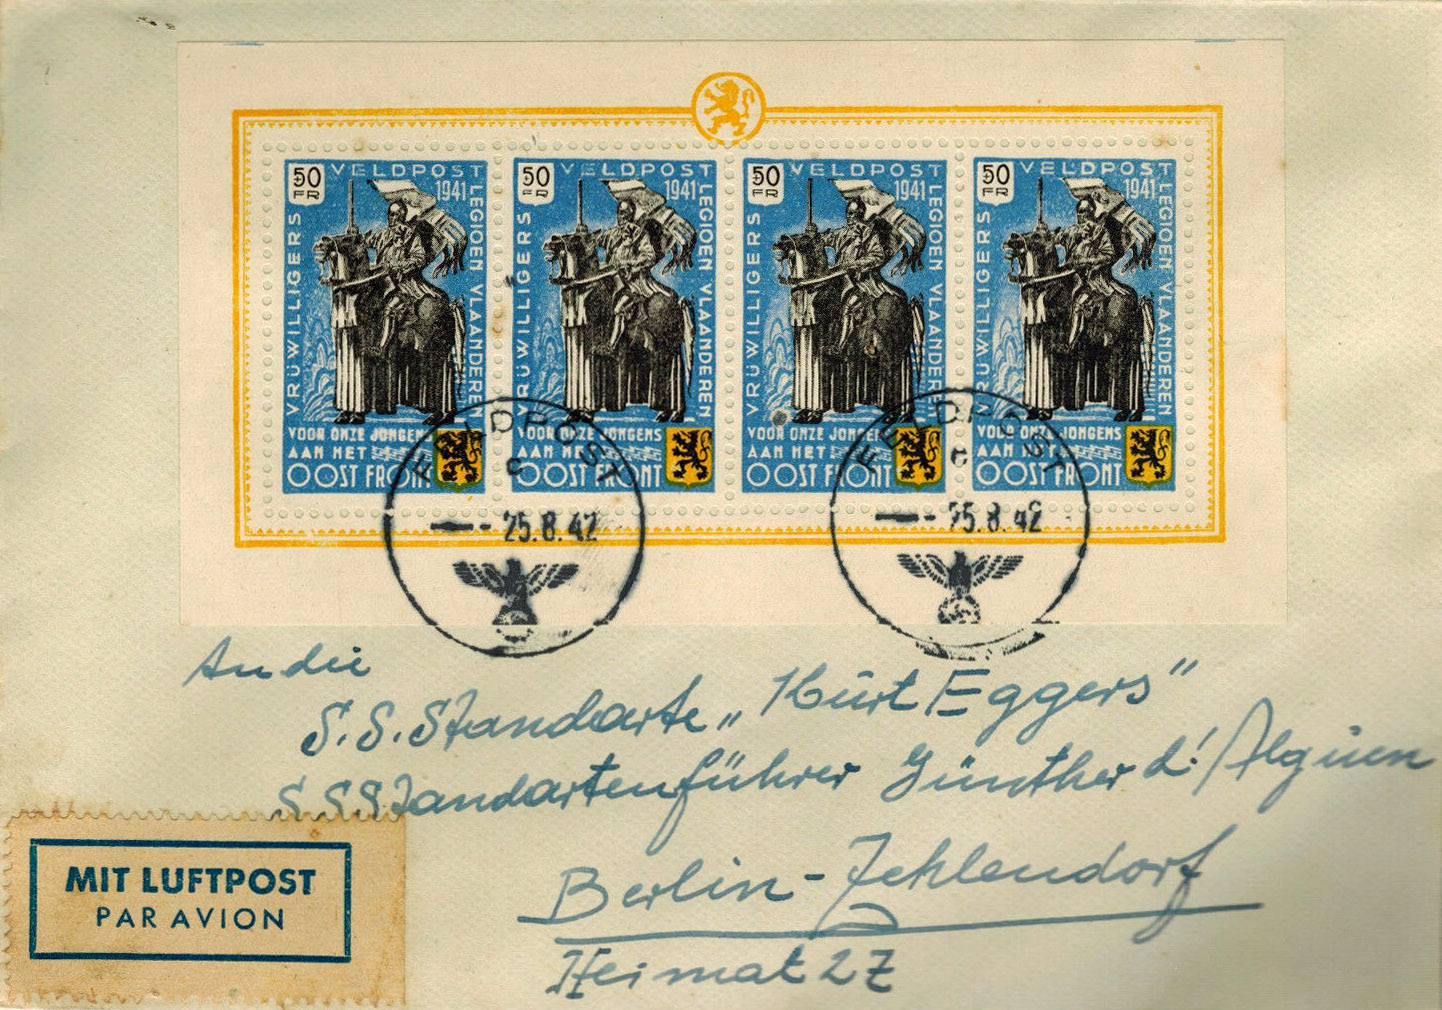 50 FR VELDPOST 1941 VRIJWILLIGERS LEGIOEN VLAANDEREN
VOOR ONZE JONGENS
AAN HET
OOST FRONT
50 FR VELDPOST 1941 VRIJWILLIGERS LEGIOEN VLAANDEREN
VOOR ONZE JONGENS
AAN HET
OOST FRONT
50 FR VELDPOST 1941 VRIJWILLIGERS LEGIOEN VLAANDEREN
VOOR ONZE JONGENS
AAN HET
OOST FRONT
50 FR VELDPOST 1941 VRIJWILLIGERS LEGIOEN VLAANDEREN
VOOR ONZE JONGENS
AAN HET
OOST FRONT
FELDPOST
c
25.8.42
FELDPOST
e
25.8.42
An die
S.S. Standarte „Kurt Eggers"
S.S. Standartenführer Günther d'Alquen
Berlin-Zehlendorf
Heimat 27
MIT LUFTPOST
PAR AVION